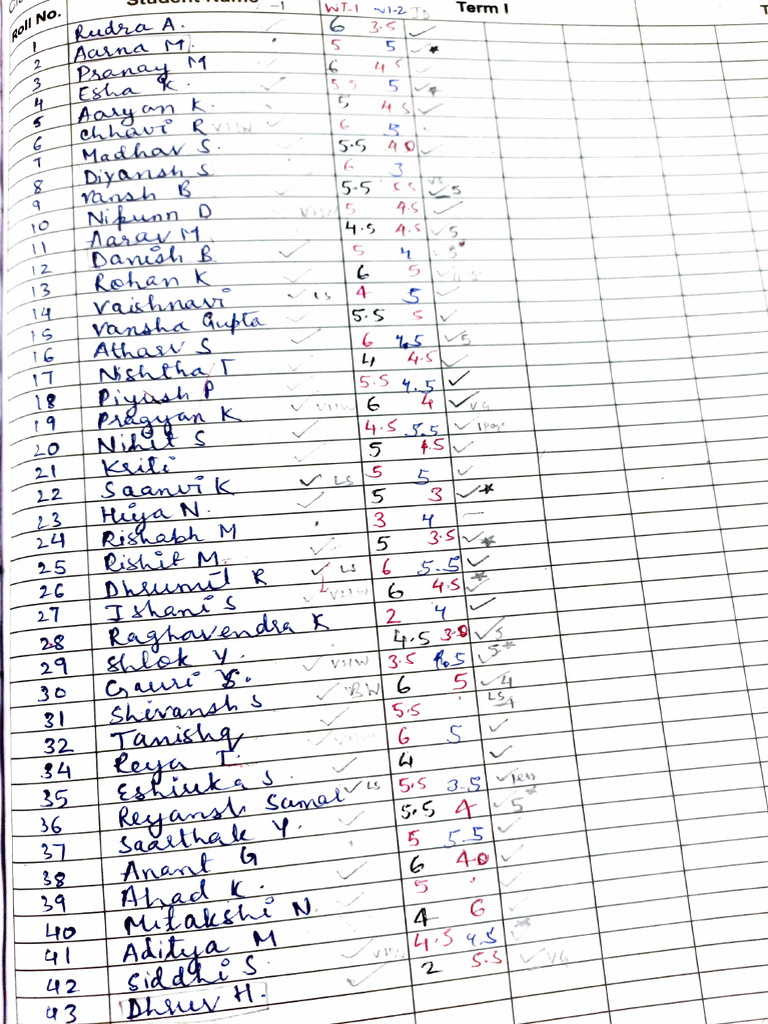 Roll No. Student Name WT-1 Term I
1 Rudra A. 6 3.5 ✓
2 Aarna M. 5 5 ✓*
3 Pranay M 6 4.5 ✓
4 Esha K. 5.5 5 ✓*
5 Aaryan K. 5 4.5 ✓
6 Chhavi R VHW 6 5
7 Madhav S. 5.5 4.0 ✓
8 Divansh S 6 3
9 Vansh B 5.5 5.5 ✓5
10 Nipunn D VHW 5 4.5 ✓
11 Aarav M 4.5 4.5 ✓5
12 Danish B ✓ 5 4 ✓5
13 Rohan K ✓ 6 5 ✓
14 Vaishnavi ✓ LS 4 5 ✓
15 Vansha Gupta 5.5 5 ✓
16 Atharv S ✓ 6 4.5 ✓5
17 Nishtha T 4 4.5 ✓
18 Piyush P 5.5 4.5 ✓
19 Pragyan K ✓ VHW 6 4 ✓ VG
20 Nihit S ✓ 4.5 5.5 ✓ 1 page
21 Kriti ✓ 5 4.5 ✓
22 Saanvi K ✓ LS 5 5 ✓
23 Hiya N. ✓ 5 3 ✓*
24 Rishabh M 3 4
25 Rishit M. ✓ 5 3.5 ✓*
26 Dhrumil R ✓ LS 6 5.5 ✓
27 Ishani S ✓ VHW 6 4.5 ✓*
28 Raghavendra K 2 4 ✓
29 Shlok Y. ✓ 4.5 3.0 ✓5
30 Gauri S. ✓ VHW 3.5 4.5 ✓5*
31 Shivansh S ✓ BW 6 5 ✓4
32 Tanishq ✓ 5.5 LS
34 Reya T. 6 5 ✓
35 Eshika S ✓ 4 ✓
36 Reyansh Samal ✓ LS 5.5 3.5 ✓
37 Saarthak Y. ✓ 5.5 4 ✓5*
38 Anant G 5 5.5 ✓
39 Ahad K. ✓ 6 4.0 ✓
40 Mitakshi N. ✓ 5 ✓
41 Aditya M ✓ 4 6 ✓
42 Siddhi S. ✓ VHW 4.5 4.5
43 Dhruv H. ✓ 2 5.5 ✓ VG